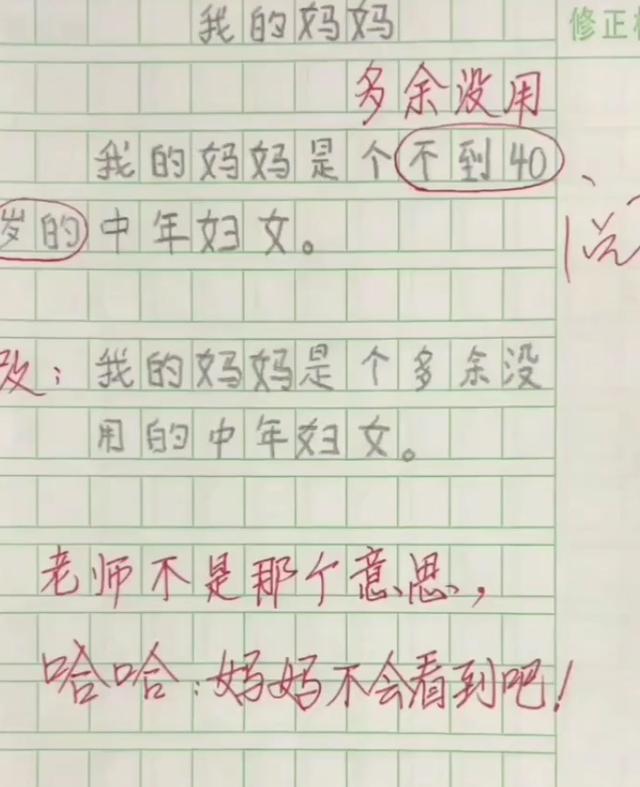 我的妈妈
修正
多余没用
我的妈妈是个不到40
岁的中年妇女。
改：我的妈妈是个多余没
用的中年妇女。
老师不是那个意思，
哈哈：妈妈不会看到吧！